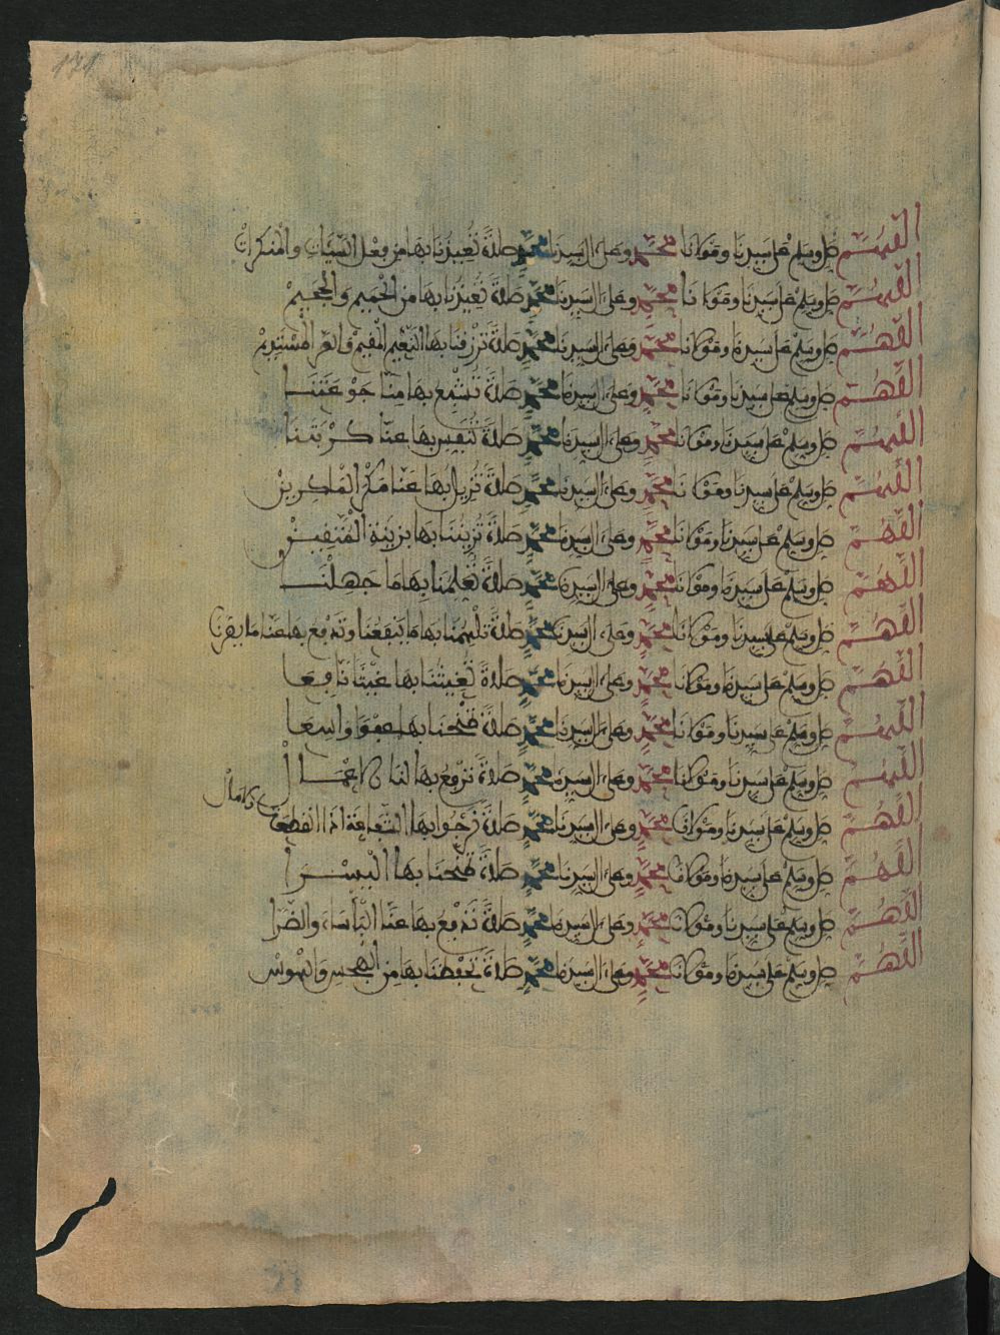 171
اللهم صل وسلم على سيدنا ومولانا محمد وعلى ءال سيدنا محمد صلاة تعيذنا بها من فعل السيئات والمنكرات
اللهم صل وسلم على سيدنا ومولانا محمد وعلى ءال سيدنا محمد صلاة تعيذنا بها من الحميم والجحيم
اللهم صل وسلم على سيدنا ومولانا محمد وعلى ءال سيدنا محمد صلاة ترزقنا بها النعيم المقيم والعز المستديم
اللهم صل وسلم على سيدنا ومولانا محمد وعلى ءال سيدنا محمد صلاة تشبع بها منا جوعتنا
اللهم صل وسلم على سيدنا ومولانا محمد وعلى ءال سيدنا محمد صلاة تنفس بها عنا كربتنا
اللهم صل وسلم على سيدنا ومولانا محمد وعلى ءال سيدنا محمد صلاة تزيل بها عنا مكر الماكرين
اللهم صل وسلم على سيدنا ومولانا محمد وعلى ءال سيدنا محمد صلاة تزيننا بها بزينة المتقين
اللهم صل وسلم على سيدنا ومولانا محمد وعلى ءال سيدنا محمد صلاة تعلمنا بها ما جهلنا
اللهم صل وسلم على سيدنا ومولانا محمد وعلى ءال سيدنا محمد صلاة تلهمنا بها ما ينفعنا وتدفع بها عنا ما يضرنا
اللهم صل وسلم على سيدنا ومولانا محمد وعلى ءال سيدنا محمد صلاة تغيثنا بها غيثا نافعا
اللهم صل وسلم على سيدنا ومولانا محمد وعلى ءال سيدنا محمد صلاة تمنحنا بها عفوا واسعا
اللهم صل وسلم على سيدنا ومولانا محمد وعلى ءال سيدنا محمد صلاة ترفع بها لنا الاعمال
اللهم صل وسلم على سيدنا ومولانا محمد وعلى ءال سيدنا محمد صلاة نرجوا بها الشفاعة اذا انقطعت الامال
اللهم صل وسلم على سيدنا ومولانا محمد وعلى ءال سيدنا محمد صلاة تمنحنا بها اليسرا
اللهم صل وسلم على سيدنا ومولانا محمد وعلى ءال سيدنا محمد صلاة تدفع بها عنا البأساء والضرا
اللهم صل وسلم على سيدنا ومولانا محمد وعلى ءال سيدنا محمد صلاة تحفظنا بها من